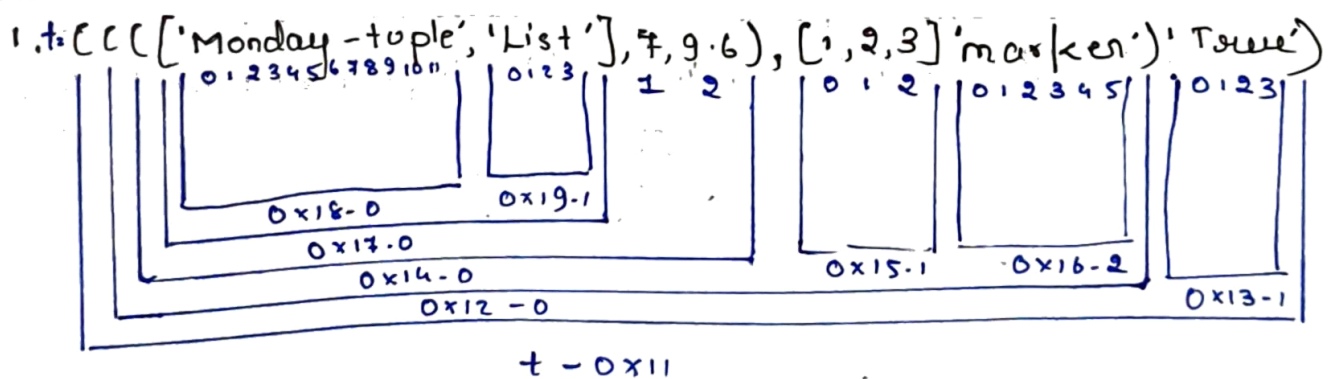 1. t= ((((['Monday-tuple', 'List'], 7, 9.6), [1, 2, 3] 'marker') 'True')
0 1 2 3 4 5 6 7 8 9 10 11 0 1 2 3 1 2 0 1 2 0 1 2 3 4 5 0 1 2 3
0x18-0 0x19-1
0x17-0
0x14-0 0x15-1 0x16-2
0x12-0 0x13-1
t - 0x11